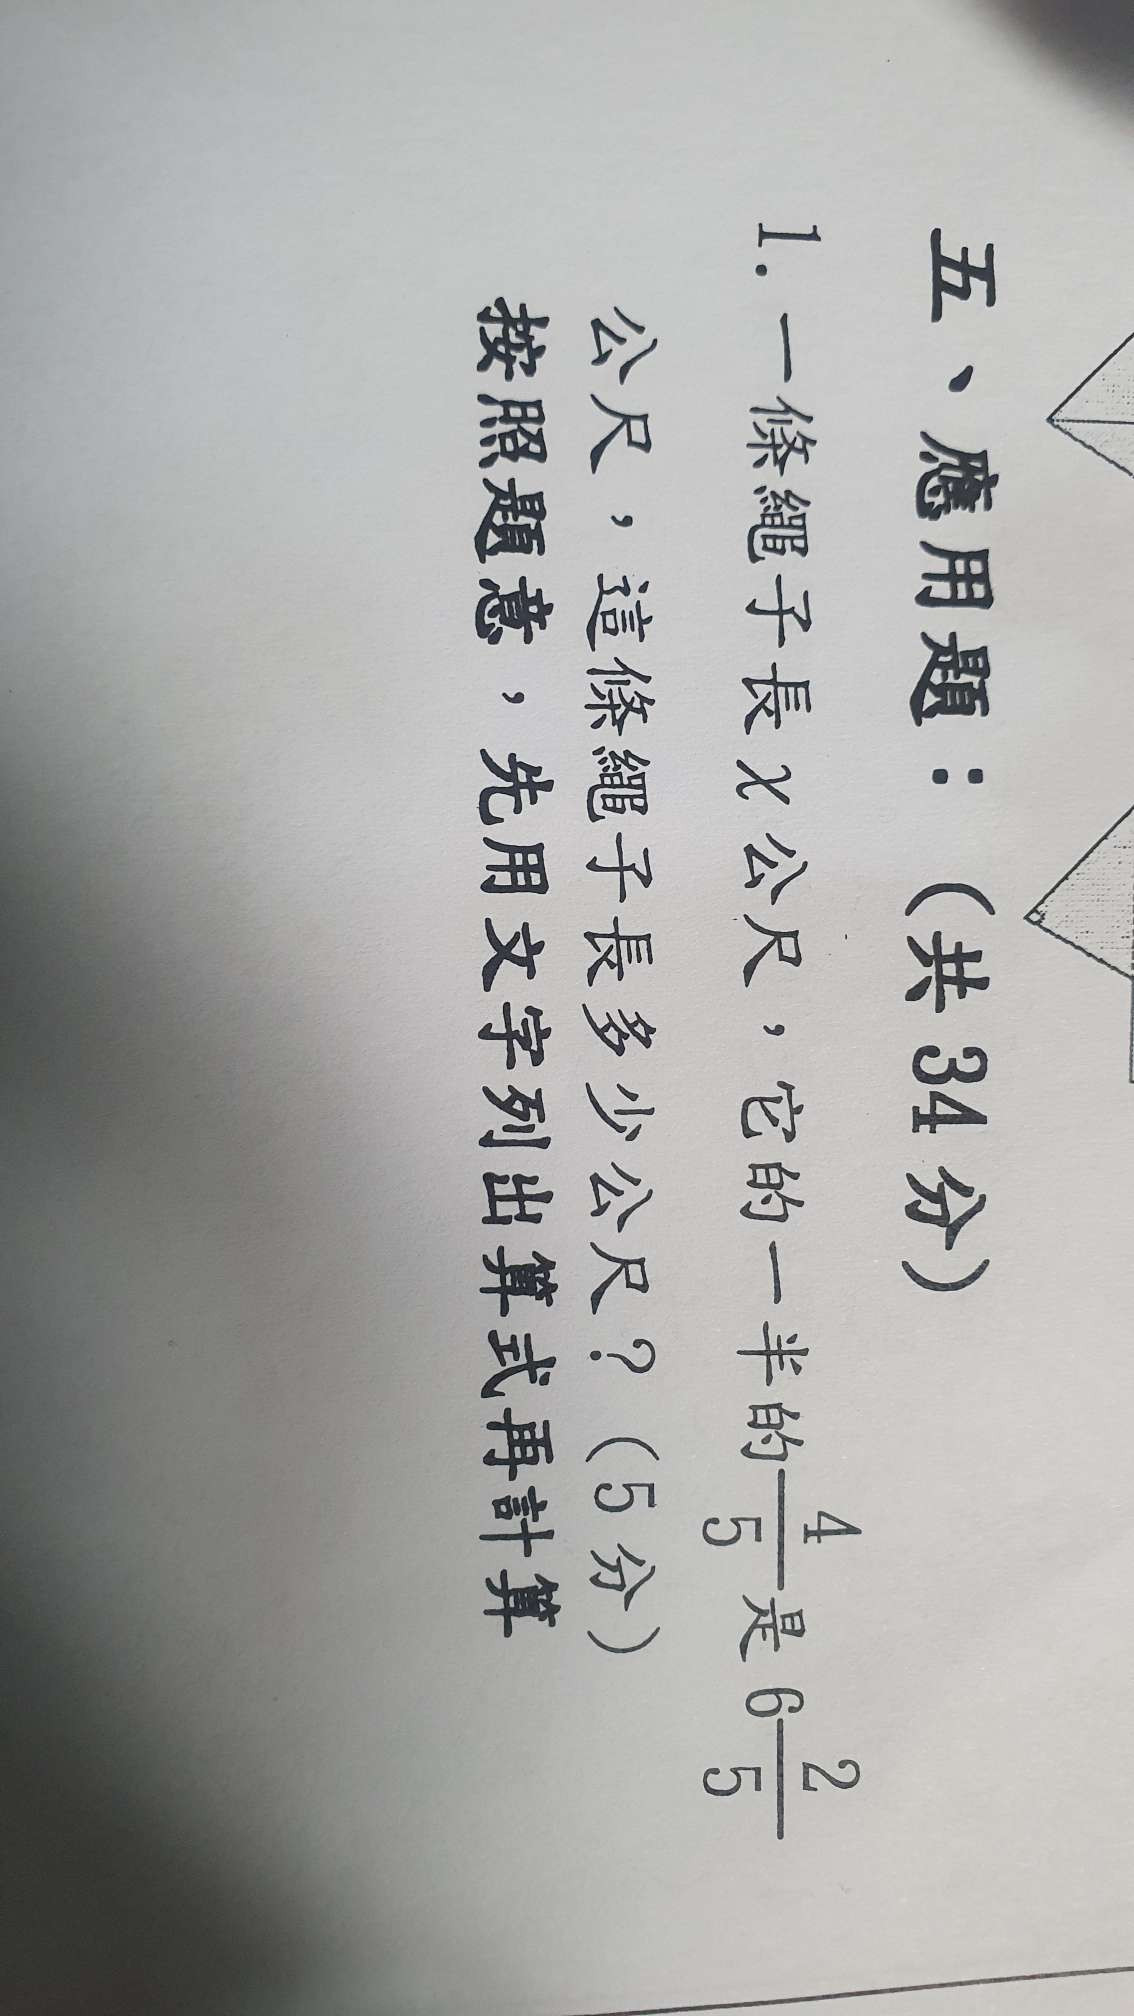 五、應用題：(共34分)
1.一條繩子長x公尺，它的一半的4/5是6 2/5
公尺，這條繩子長多少公尺？(5分)
按照題意，先用文字列出算式再計算